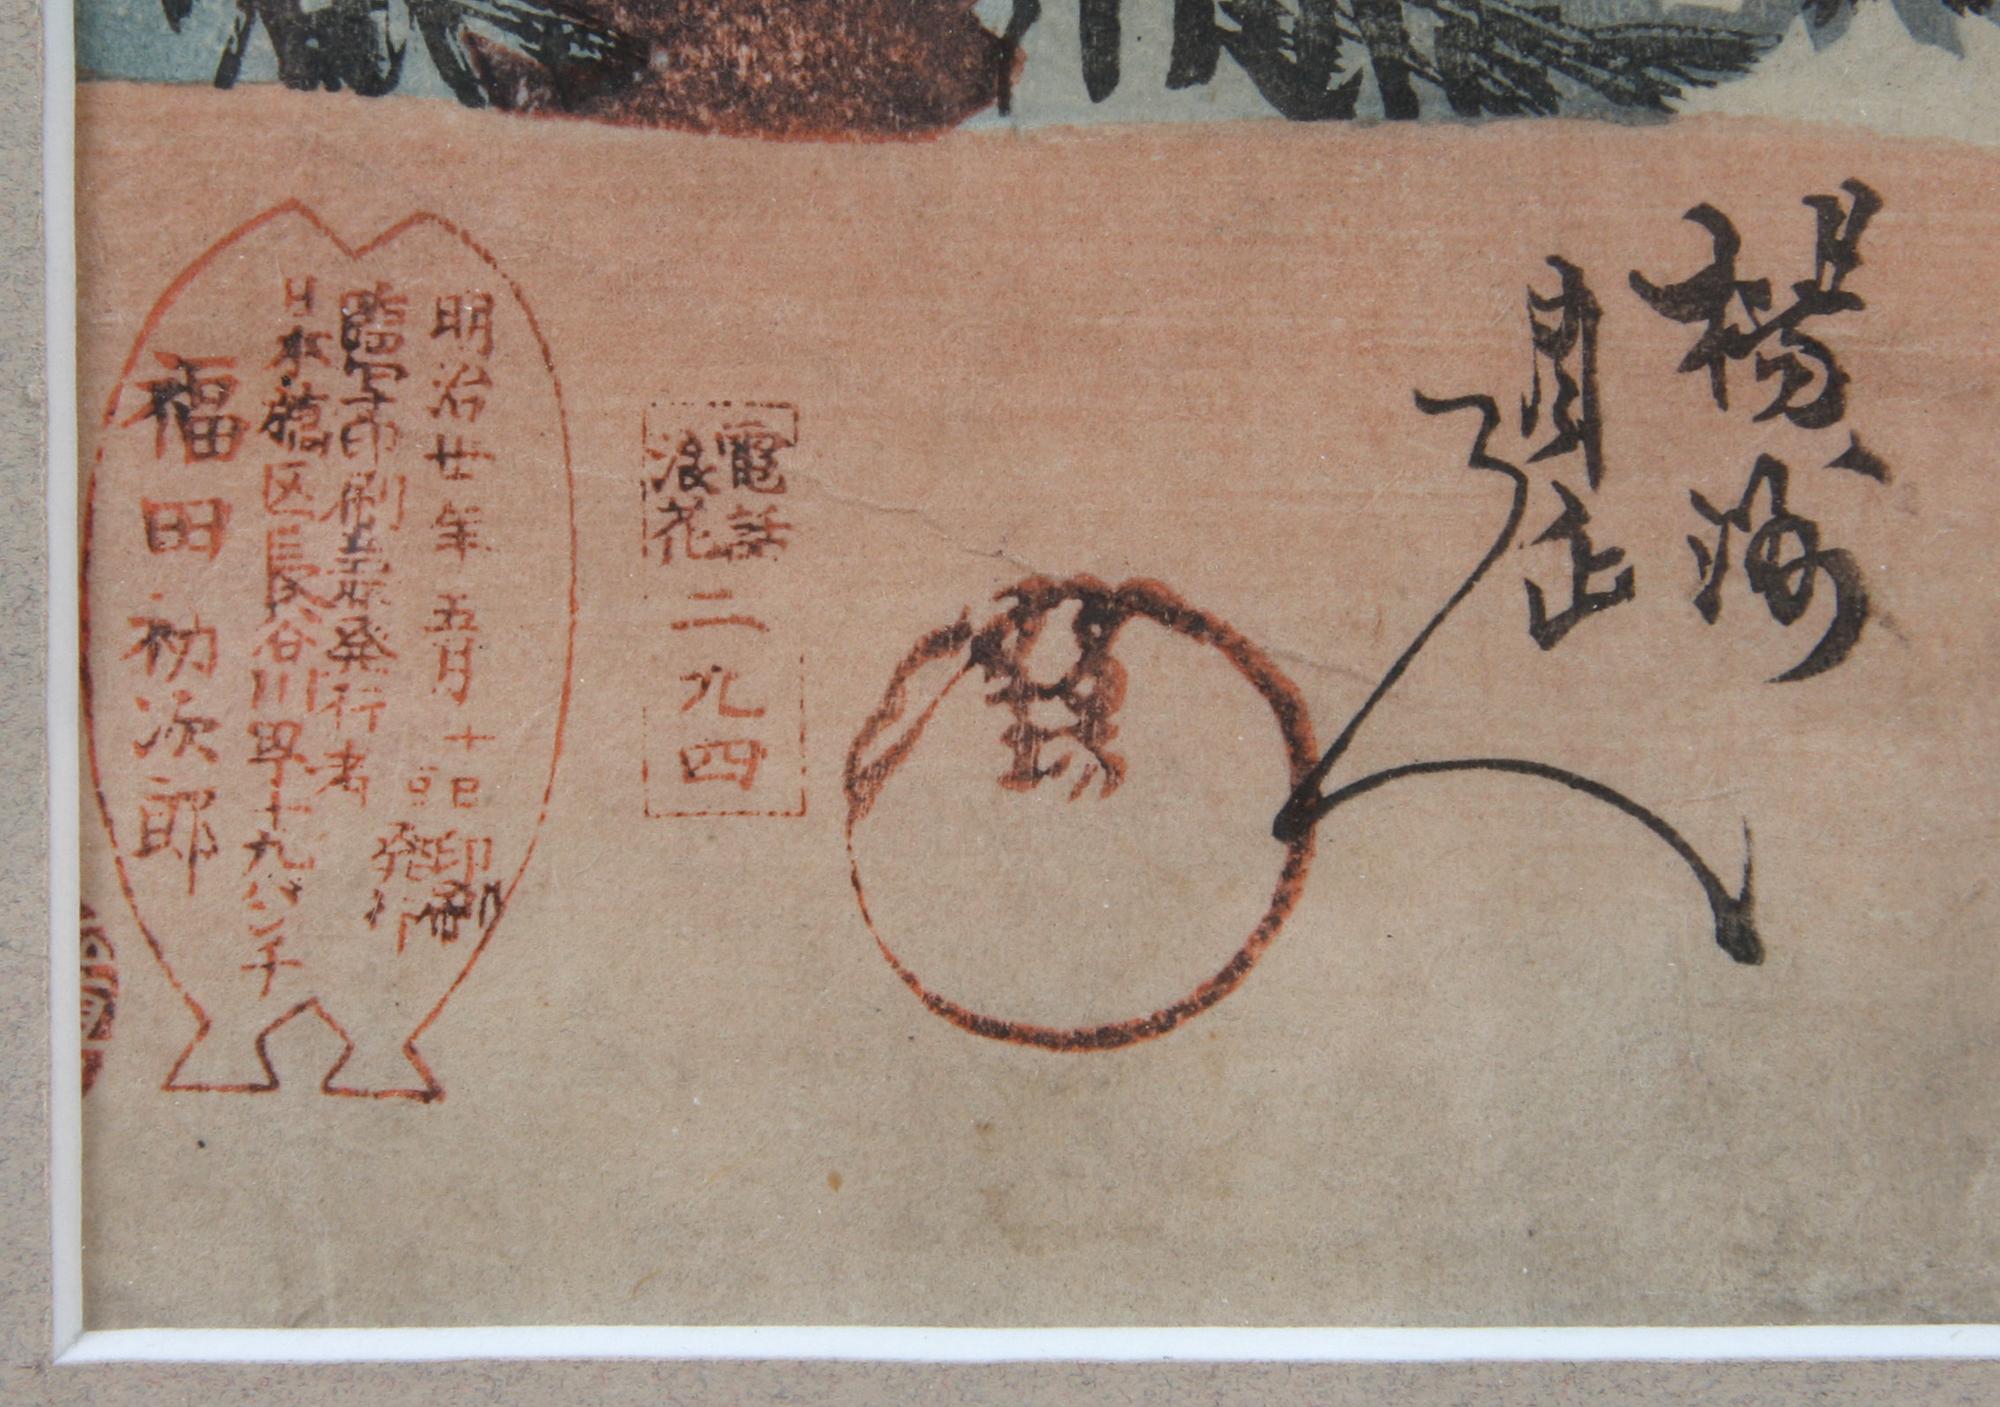 楊洲
周延
電話
浪花
二九四
明治廿年五月十日印刷
臨写印刷兼発行者
日本橋区長谷川町十九バンチ
福田初次郎